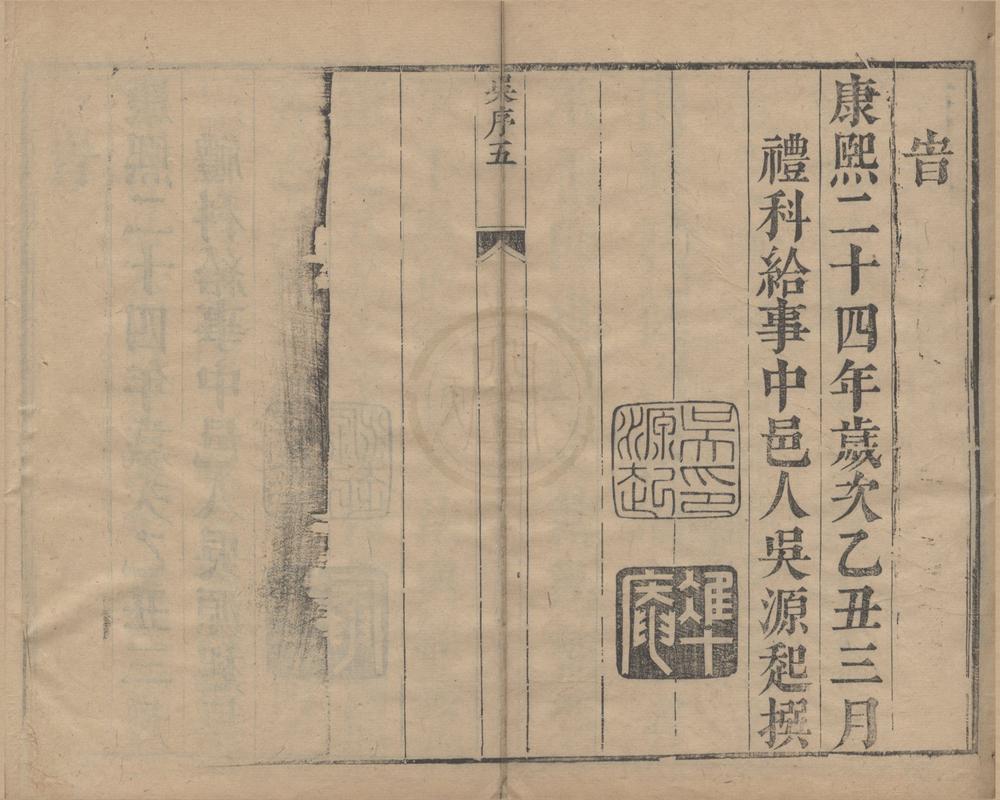 旹
康熙二十四年歲次乙丑三月
禮科給事中邑人吳源起撰
吳印源起
吳序五